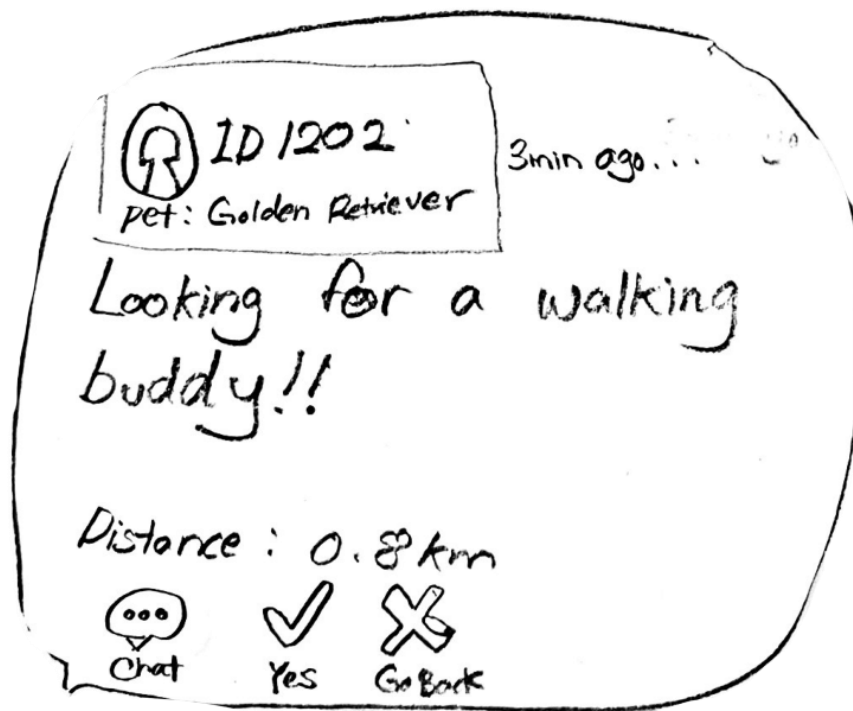 ID 1202
3min ago...
pet: Golden Retriever
Looking for a walking
buddy!!
Distance: 0.8km
Chat
Yes
Go Back